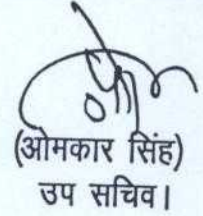 (ओमकार सिंह)
उप सचिव।